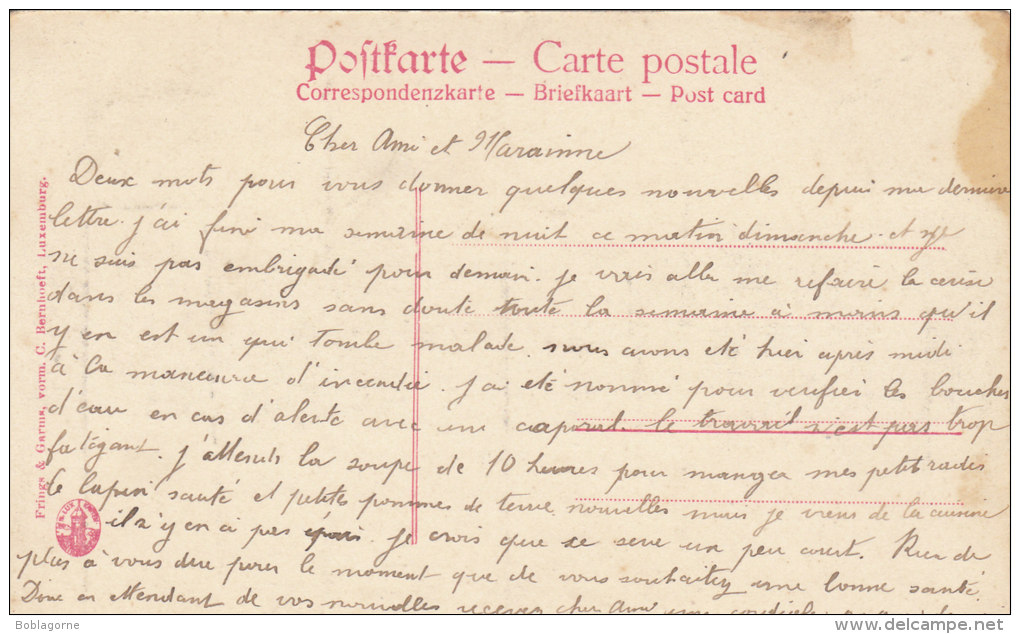 Postkarte — Carte postale
Correspondenzkarte — Briefkaart — Post card
Cher Ami et Marainne
Deux mots pour vous donner quelques nouvelles depui ma derniere
lettre. j'ai fini ma semaine de nuit ce matin dimanche. et
ne suis pas embrigadé pour demain. je vais aller me refaire la cerise
dans les magasins sans doute toute la semaine à moins qu'il
y en est un qui tombe malade. nous avons eté hier apres midi
à la maneuvre d'incendie. j'ai eté nommé pour verifier les bouches
d'eau en cas d'alerte avec un caporal. le travail n'est pas trop
fatégant. j'attends la soupe de 10 heures pour manger mes petit radis
le lapin sauté et petites pommes de terre nouvelles mais je viens de la cuisine
il n'y en a pas épais. je crois que ce sera un peu court. Rien de
plus à vous dire pour le moment que de vous souhaiter une bonne santé.
Donc en attendant de vos nouvelles recevez cher Ami une
Frings & Garms, vorm. C. Bernhoeft, Luxemburg.
Boblagorne
delcampe.net